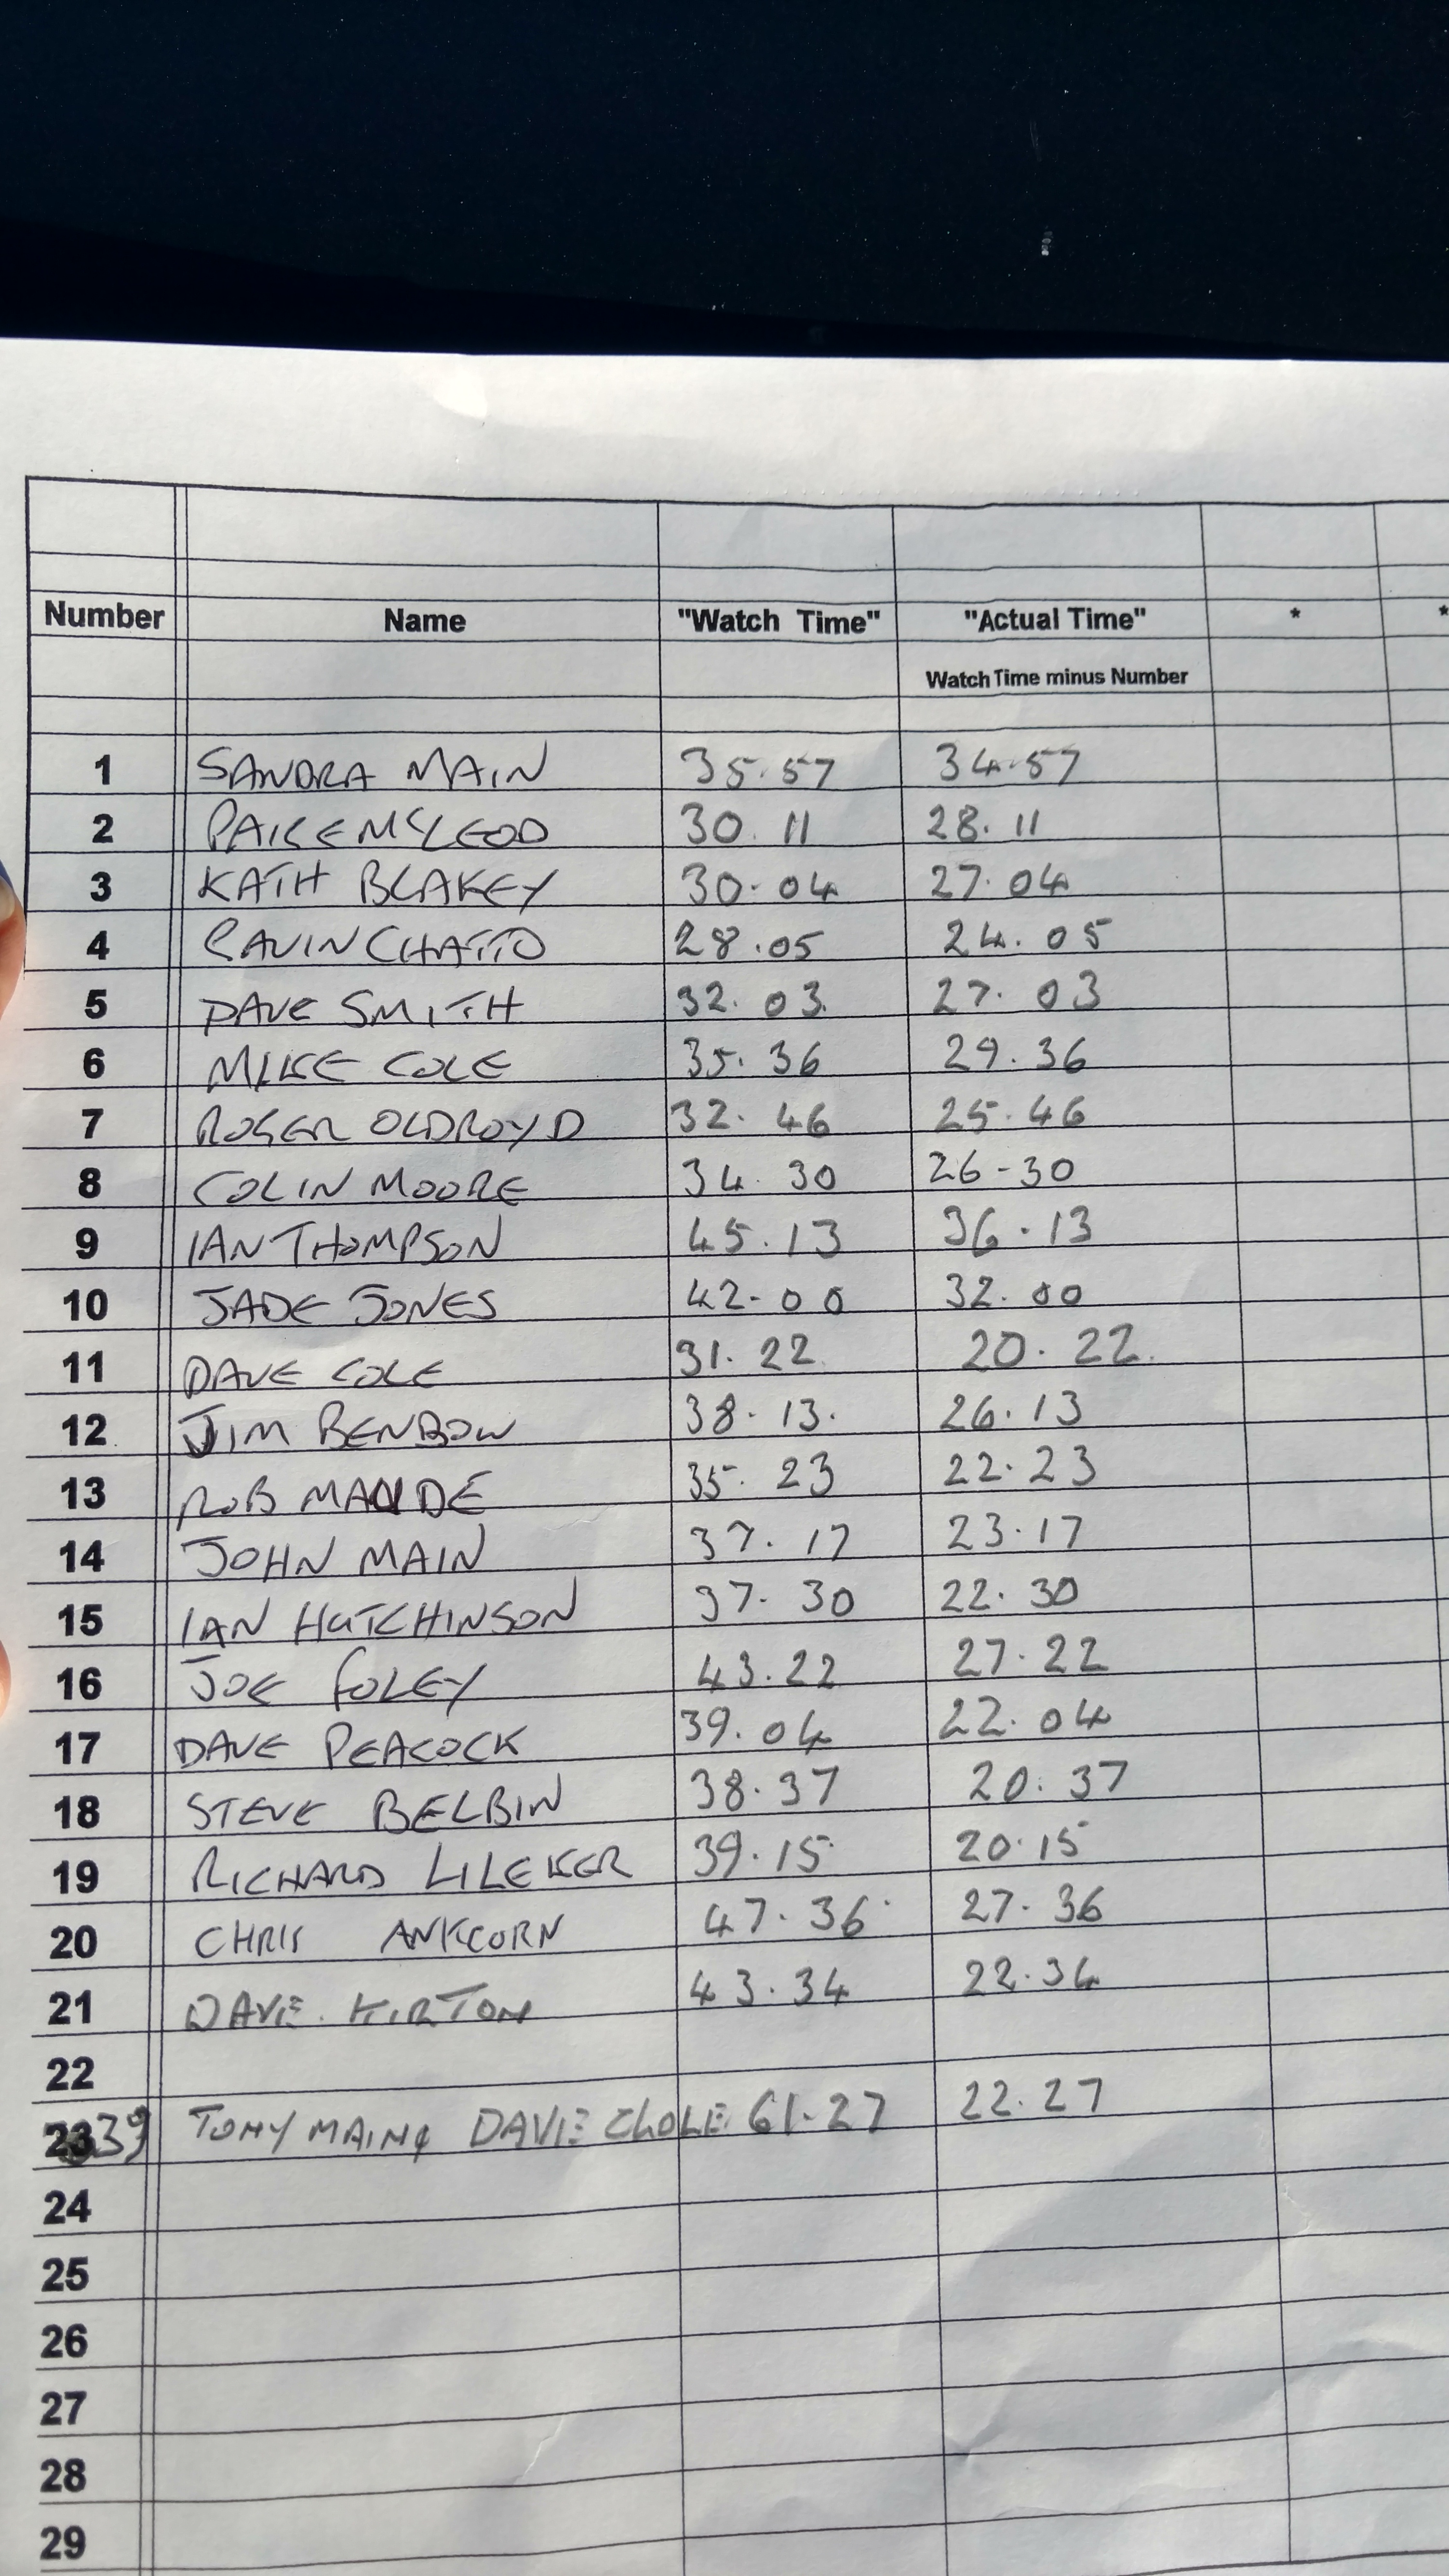 Number Name "Watch Time" "Actual Time" * *
Watch Time minus Number
1 SANDRA MAIN 35.57 34.57
2 PAIGE MCLEOD 30.11 28.11
3 KATH BLAKEY 30.04 27.04
4 GAVIN CHATTO 28.05 24.05
5 DAVE SMITH 32.03 27.03
6 MIKE COLE 35.36 29.36
7 ROGER OLDROYD 32.46 25.46
8 COLIN MOORE 34.30 26-30
9 IAN THOMPSON 45.13 36.13
10 JADE JONES 42-00 32.00
11 DAVE COLE 31.22 20.22
12 JIM BENBOW 38.13. 26.13
13 ROB MAUDE 35.23 22.23
14 JOHN MAIN 37.17 23.17
15 IAN HUTCHINSON 37.30 22.30
16 JOE FOLEY 43.22 27.22
17 DAVE PEACOCK 39.04 22.04
18 STEVE BELBIN 38.37 20.37
19 RICHARD LILEKER 39.15 20.15
20 CHRIS ANKCORN 47.36 27.36
21 DAVE KIRTON 43.34 22.34
22
39 TONY MAIN & DAVE 61.27 22.27
24
25
26
27
28
29